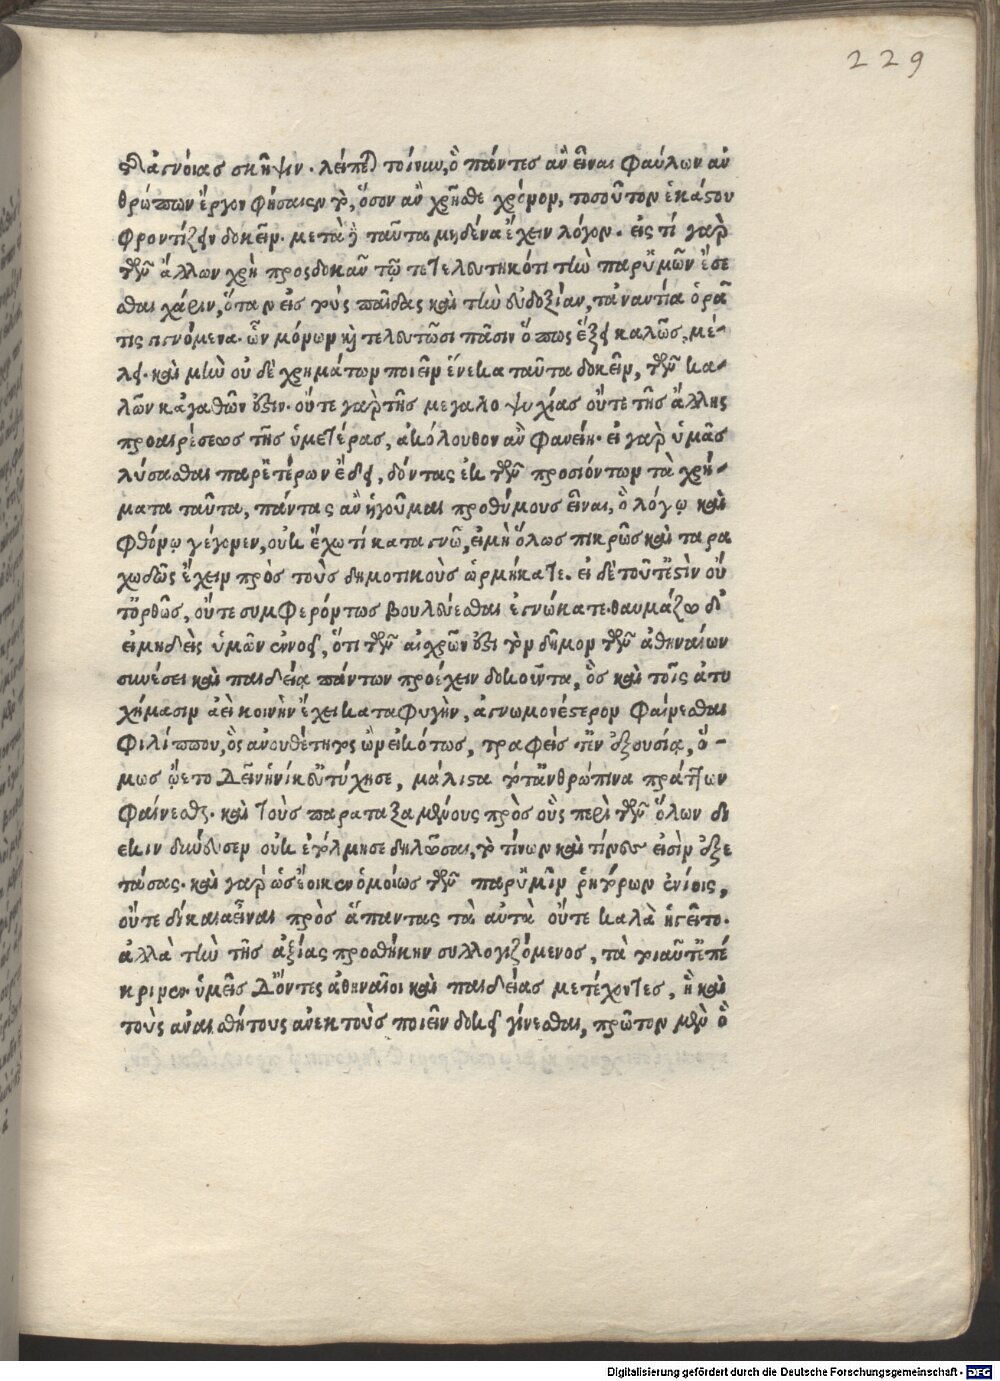 229
δι' ἀγνοίας σκῆψιν. λείπεται τοίνυν, ὃ πάντες ἂν εἶναι φαύλων ἀν
θρώπων ἔργον φήσαιεν τὸ, ὅσον ἂν χρῆσθε χρόνον, τοσοῦτον ἑκάστου
φροντίζειν δοκεῖν. μετὰ δὲ ταῦτα μηδένα ἔχειν λόγον. εἰς τί γὰρ
τῶν ἄλλων χρὴ προσδοκᾶν τῷ τετελευτηκότι τὴν παρ' ὑμῶν ἔσε
σθαι χάριν, ὅταν εἰς τοὺς παῖδας καὶ τὴν εὐδοξίαν, τἀναντία ὁρᾷ
τις γιγνόμενα. ὧν μόνων καὶ τελευτῶσι πᾶσιν ὅπως ἕξει καλῶς, μέ-
λει. καὶ μὴν οὐδὲ χρημάτων ποιεῖν ἕνεκα ταῦτα δοκεῖν, τῶν κα-
λῶν κἀγαθῶν ἐστιν. οὔτε γὰρ τῆς μεγαλοψυχίας οὔτε τῆς ἄλλης
προαιρέσεως τῆς ὑμετέρας, ἀκόλουθον ἂν φανείη. εἰ γὰρ ὑμᾶς
λύσασθαι παρ' ἑτέρων ἔδει, δόντας ἐκ τῶν προσιόντων τὰ χρή-
ματα ταῦτα, πάντας ἂν ἡγοῦμαι προθύμους εἶναι, ὃ λόγῳ καὶ
φθόνῳ γέγονεν, οὐκ ἔχω τί καταγνῶ, εἰ μὴ ὅλως πικρῶς καὶ ταρα
χωδῶς ἔχειν πρὸς τοὺς δημοτικοὺς ὡρμήκατε. εἰ δὲ τοῦτ' ἔστιν οὔ
τ' ὀρθῶς, οὔτε συμφερόντως βουλεύεσθαι ἐγνώκατε. θαυμάζω δ'
εἰ μηδεὶς ὑμῶν ἐννοεῖ, ὅτι τῶν αἰσχρῶν ἐστι τὸν δῆμον τῶν ἀθηναίων
συνέσει καὶ παιδείᾳ πάντων προέχειν δοκοῦντα, ὃς καὶ τοῖς ἀτυ
χήμασιν ἀεὶ κοινὴν ἔχει καταφυγὴν, ἀγνωμονέστερον φαίνεσθαι
φιλίππου, ὃς ἀνουθέτητος ὢν εἰκότως, τραφεὶς γ' ἐν ἐξουσίᾳ, ὅ-
μως ᾤετο δεῖν ἡνίκ' εὐτύχησε, μάλιστα τότ' ἀνθρώπινα πράττων
φαίνεσθαι. καὶ τοὺς παραταξαμένους πρὸς οὓς περὶ τῶν ὅλων δι
εκινδύνευσεν οὐκ ἐτόλμησε δηλῶσαι, τὸ τίνων καὶ τίνες εἰσὶν ἐξε
τάσας. καὶ γὰρ ὡς ἔοικεν ὁμοίως τῶν παρ' ὑμῖν ῥητόρων ἐνίοις,
οὔτε δίκαια εἶναι πρὸς ἅπαντας τὰ αὐτὰ οὔτε καλὰ ἡγεῖτο.
ἀλλὰ τὴν τῆς ἀξίας προσθήκην συλλογιζόμενος, τὰ τοιαῦτ' ἐπέ
κρινεν. ὑμεῖς δ' ὄντες ἀθηναῖοι καὶ παιδείας μετέχοντες, ἣ καὶ
τοὺς ἀναισθήτους ἀνεκτοὺς ποιεῖν δοκεῖ γίνεσθαι, πρῶτον μὲν ὃ
Digitalisierung gefördert durch die Deutsche Forschungsgemeinschaft - DFG